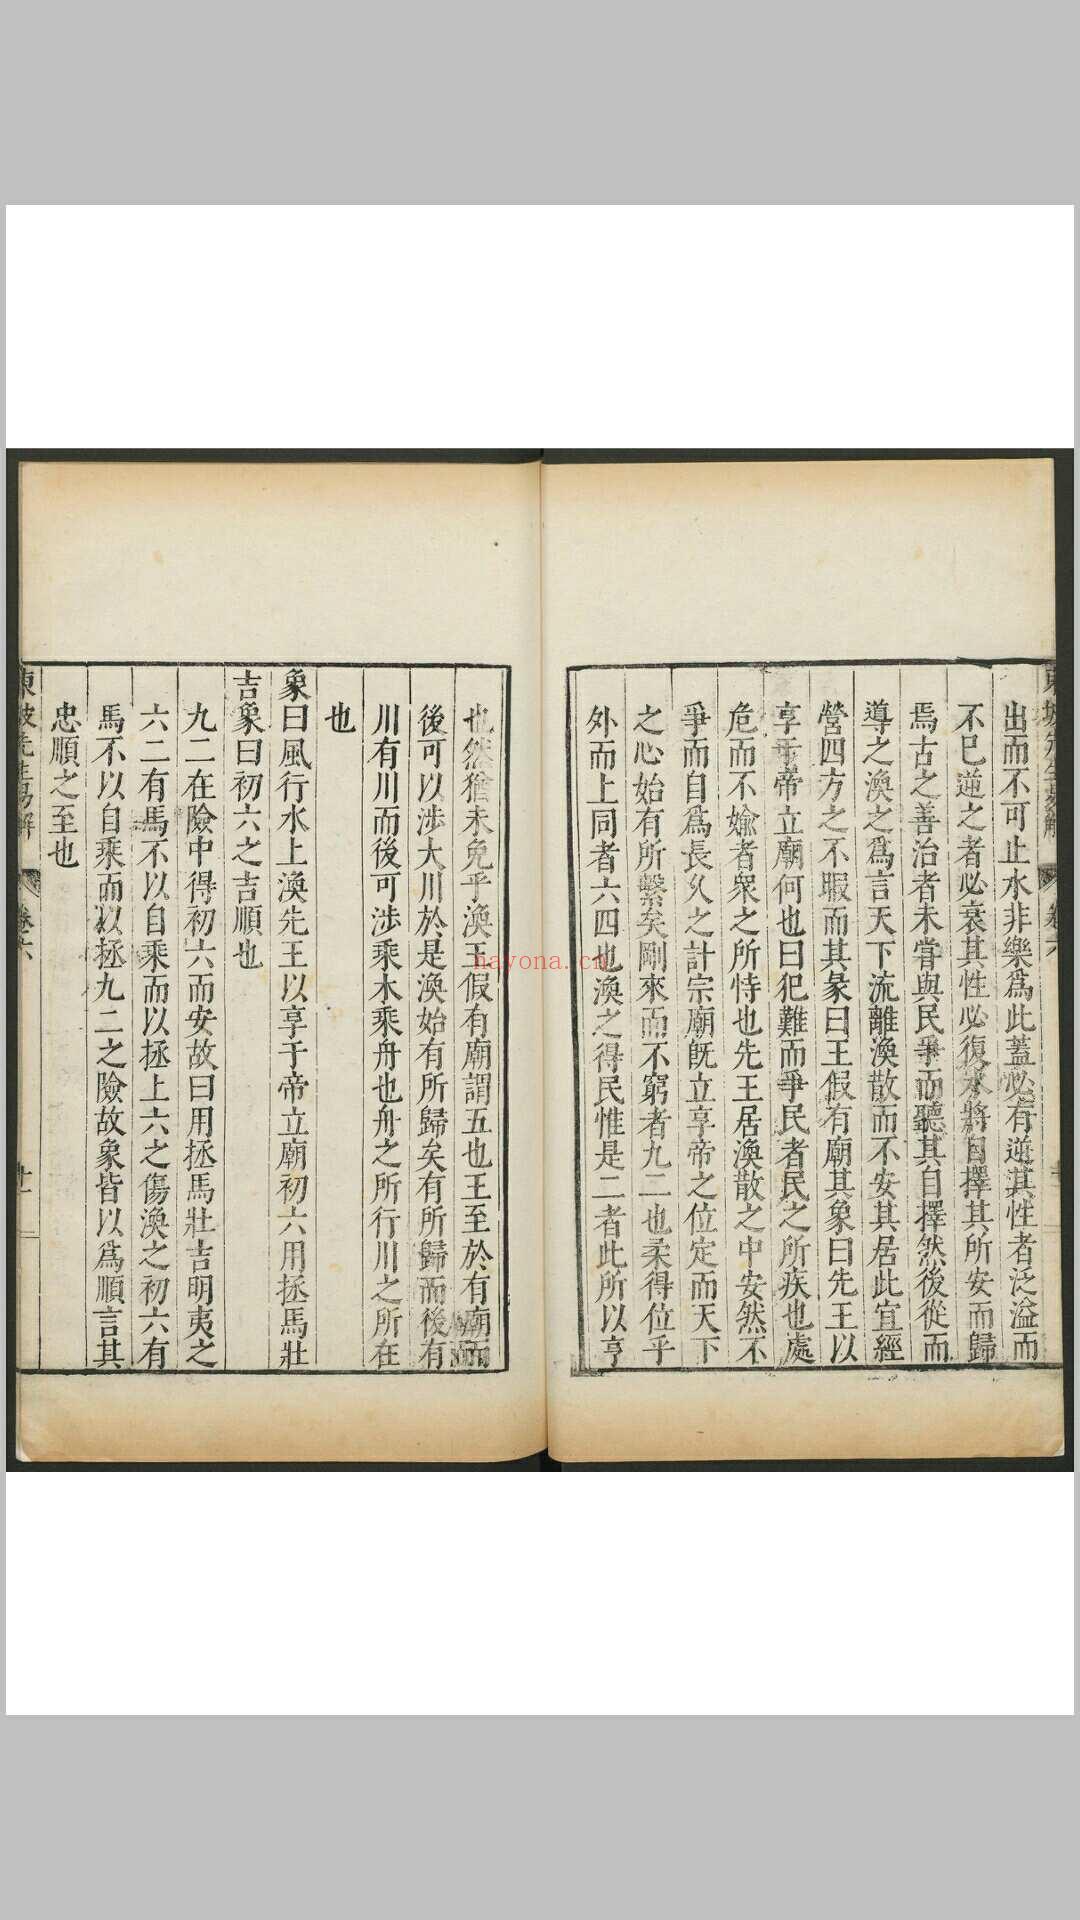 出而不可止水非樂爲此蓋必有逆其性者泛溢而
不已逆之者必衰其性必復水將自擇其所安而歸
焉古之善治者未嘗與民爭而聽其自擇然後從而
導之渙之爲言天下流離渙散而不安其居此宜經
營四方之不暇而其彖曰王假有廟其象曰先王以
享于帝立廟何也曰犯難而爭民者民之所疾也處
危而不媮者衆之所恃也先王居渙散之中安然不
爭而自爲長久之計宗廟旣立享帝之位定而天下
之心始有所繫矣剛來而不窮者九二也柔得位乎
外而上同者六四也渙之得民惟是二者此所以亨
也然猶未免乎渙王假有廟謂五也王至於有廟而
後可以涉大川於是渙始有所歸矣有所歸而後有
川有川而後可涉乘木乘舟也舟之所行川之所在
也
象曰風行水上渙先王以享于帝立廟初六用拯馬壯
吉象曰初六之吉順也
九二在險中得初六而安故曰用拯馬壯吉明夷之
六二有馬不以自乘而以拯上六之傷渙之初六有
馬不以自乘而以拯九二之險故象皆以爲順言其
忠順之至也
東坡先生易解 卷六 十一
nayona.cn